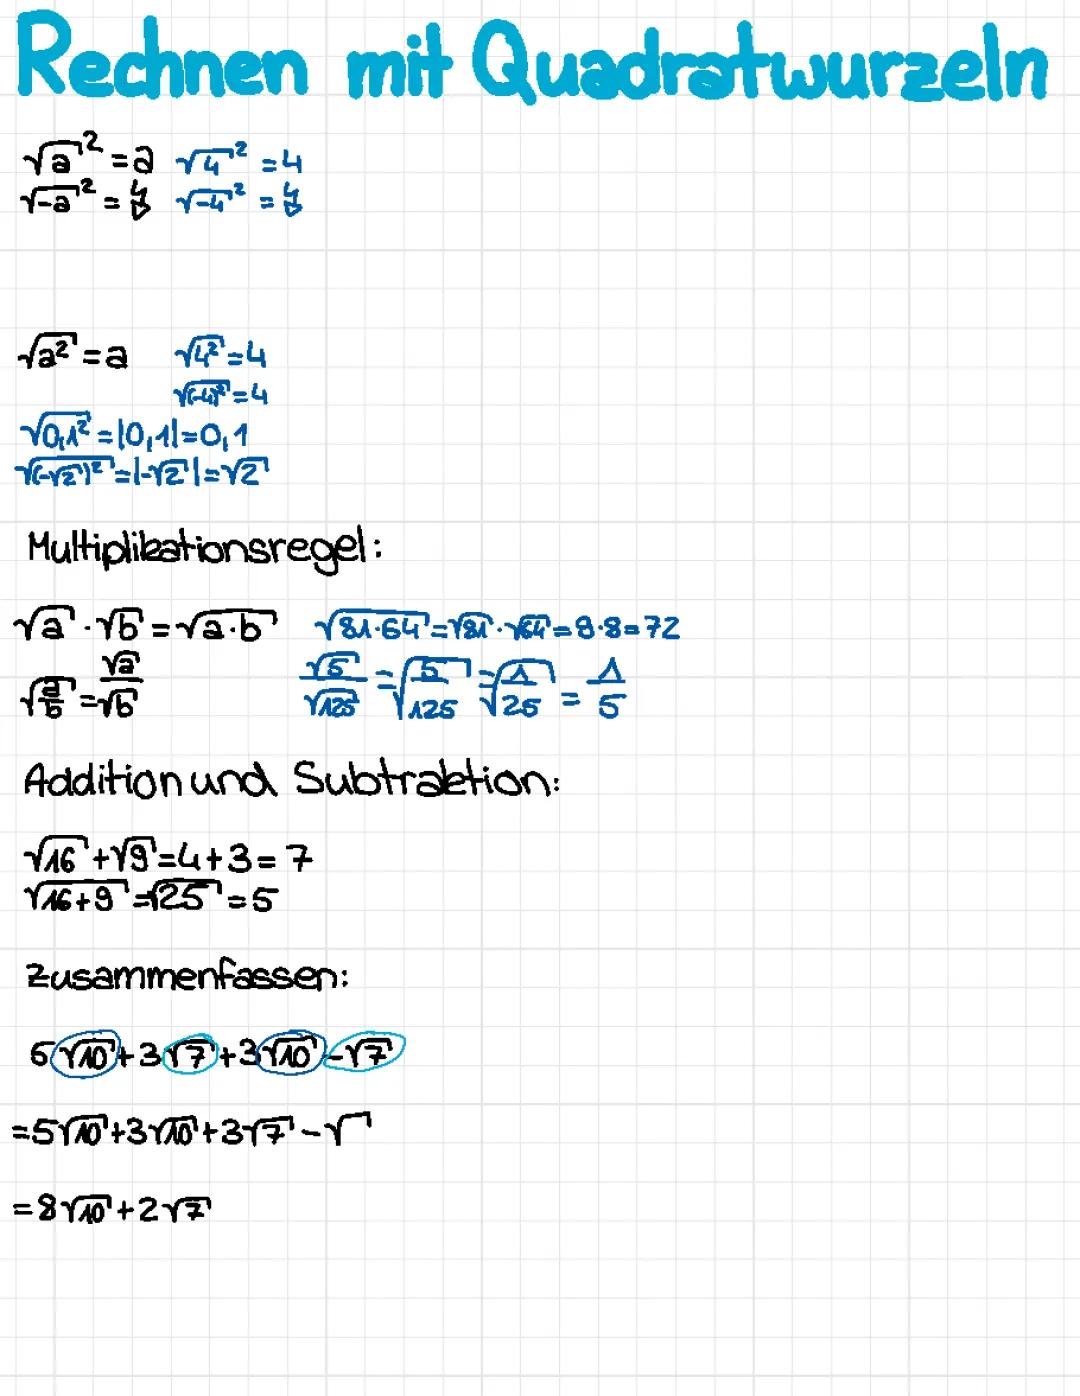 Rechnen mit Quadratwurzeln
√a² = a √4² = 4
√-a² = ↯ √-4² = ↯
√a² = a √4² = 4
√(-4)² = 4
√0,1² = |0,1| = 0,1
√(-√2)² = |-√2| = √2
Multiplikationsregel:
√a · √b = √a·b √81·64 = √81 · √64 = 9·8 = 72
√a/b = √a/√b √5/√125 = √5/125 = √1/25 = 1/5
Addition und Subtraktion:
√16 + √9 = 4 + 3 = 7
√16+9 = √25 = 5
Zusammenfassen:
5√10 + 3√7 + 3√10 - √7
= 5√10 + 3√10 + 3√7 - √
= 8√10 + 2√7